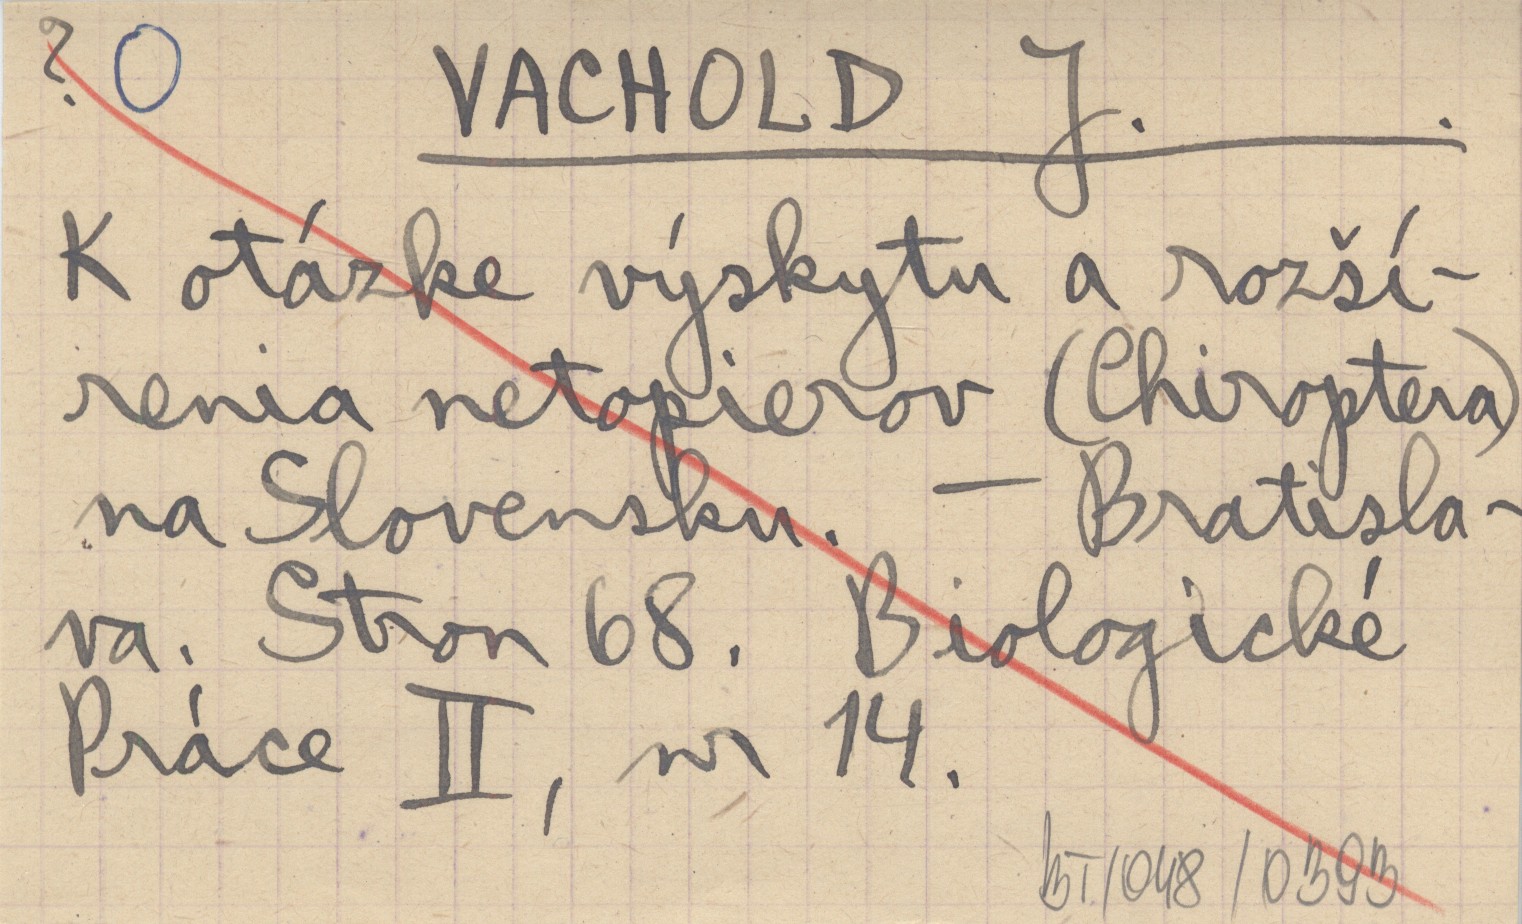 ? O
VACHOLD J. .
K otázke výskytu a rozší-
renia netopierov (Chiroptera)
na Slovensku. — Bratisla-
va. Stron 68. Biologické
Práce II, nr 14.
BT/048/0393